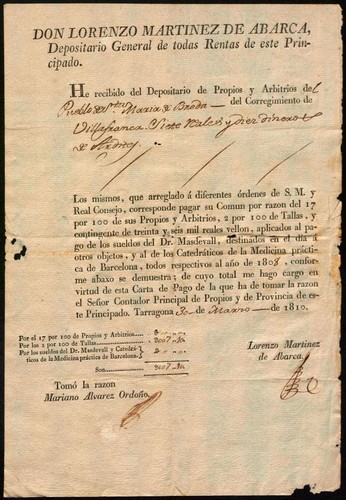 DON LORENZO MARTINEZ DE ABARCA,
Depositario General de todas Rentas de este Prin-
cipado.
He recibido del Depositario de Propios y Arbitrios del
Pueblo de Sta. Maria de del Corregimiento de
Villafranca. Siete Reales y diez dineros
de Ardites
Los mismos, que arreglado á diferentes órdenes de S. M. y
Real Consejo, corresponde pagar su Comun por razon del 17
por 100 de sus Propios y Arbitrios, 2 por 100 de Tallas, y
contingente de treinta y seis mil reales vellon, aplicados al pa-
go de los sueldos del Dr. Masdevall, destinados en el dia á
otros objetos, y al de los Catedráticos de la Medicina práctica
de Barcelona, todos respectivos al año de 1808, confor-
me abaxo se demuestra; de cuyo total me hago cargo en
virtud de esta Carta de Pago de la que ha de tomar la razon
el Señor Contador Principal de Propios y de Provincia de es-
te Principado. Tarragona 30 de Marzo de 1810.
Por el 17 por 100 de Propios y Arbitrios.
Por los 2 por 100 de Tallas
Por los sueldos del Dr. Masdevall y Catedrá-
ticos de la Medicina práctica de Barcelona.
Son
Lorenzo Martinez
de Abarca.
Tomó la razon
Mariano Alvarez Ordoño.